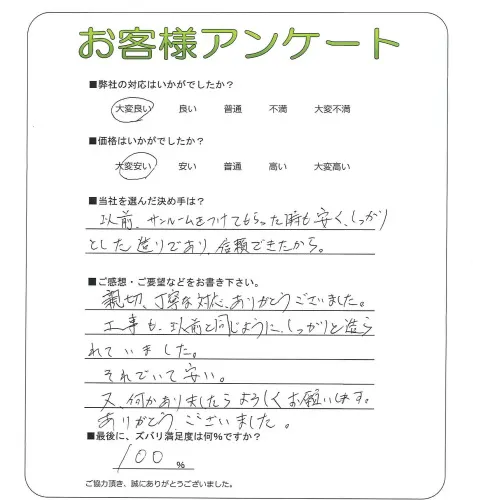 お客様アンケート
■弊社の対応はいかがでしたか？
大変良い 良い 普通 不満 大変不満
■価格はいかがでしたか？
大変安い 安い 普通 高い 大変高い
■当社を選んだ決め手は？
以前、サンルームをつけてもらった時も安く、しっかり
とした造りであり、信頼できたから。
■ご感想・ご要望などをお書き下さい。
親切、丁寧な対応、ありがとうございました。
工事も、以前と同じように、しっかりと造ら
れていました。
それでいて安い。
又、何かありましたらよろしくお願いします。
ありがとうございました。
■最後に、ズバリ満足度は何%ですか？
100 %
ご協力頂き、誠にありがとうございました。